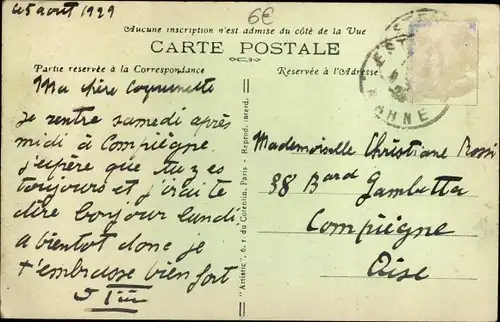 15 août 1929
6€
Aucune inscription n'est admise du côté de la Vue
CARTE POSTALE
Partie reservée à la Correspondance
Reservée à l'Adresse
Ma chère
je rentre samedi après
midi à Compiègne.
j'espère que tu y es
toujours et j'irai te
dire bonjour lundi
a bientot donc je
t'embrasse bien fort
Mademoiselle Christiane Rossi
38 Bard Gambetta
Compiègne
Oise
"Artistic" 6, r. du Cotentin, Paris - Reprod. interd.
MARNE